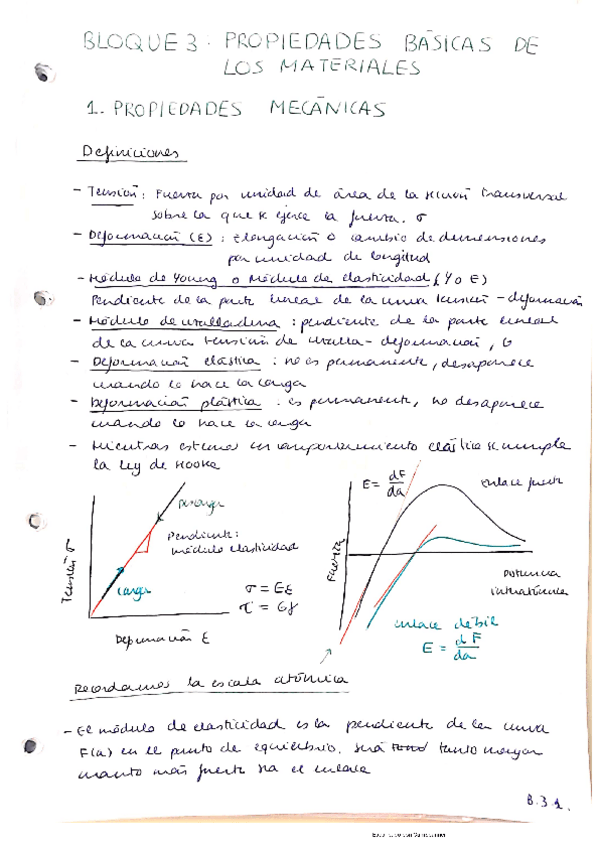 BLOQUE 3. PROPIEDADES BÁSICAS DE
LOS MATERIALES
1. PROPIEDADES MECÁNICAS
Definiciones
- Tensión: Fuerza por unidad de área de la sección transversal
sobre la que se ejerce la fuerza. σ
- Deformación (E) : Elongación o cambio de dimensiones
por unidad de longitud
- Módulo de Young o Módulo de elasticidad (Y o E)
Pendiente de la parte lineal de la curva tensión - deformación
- Módulo de cizalladura : pendiente de la parte lineal
de la curva tensión de cizalla - deformación, G
- Deformación elástica : no es permanente, desaparece
cuando lo hace la carga
- Deformación plástica : es permanente, no desaparece
cuando lo hace la carga
- Mientras estemos en comportamiento elástico se cumple
la ley de Hooke
Tensión σ
descarga
Pendiente:
módulo elasticidad
carga
σ = Eε
τ = Gγ
Deformación E
Fuerza
E = dF/da
enlace fuerte
Distancia
interatómica
enlace débil
E = dF/da
Recordamos la escala atómica
- El módulo de elasticidad es la pendiente de la curva
F(a) en el punto de equilibrio. Será tanto mayor
cuanto más fuerte sea el enlace
B.3.1.